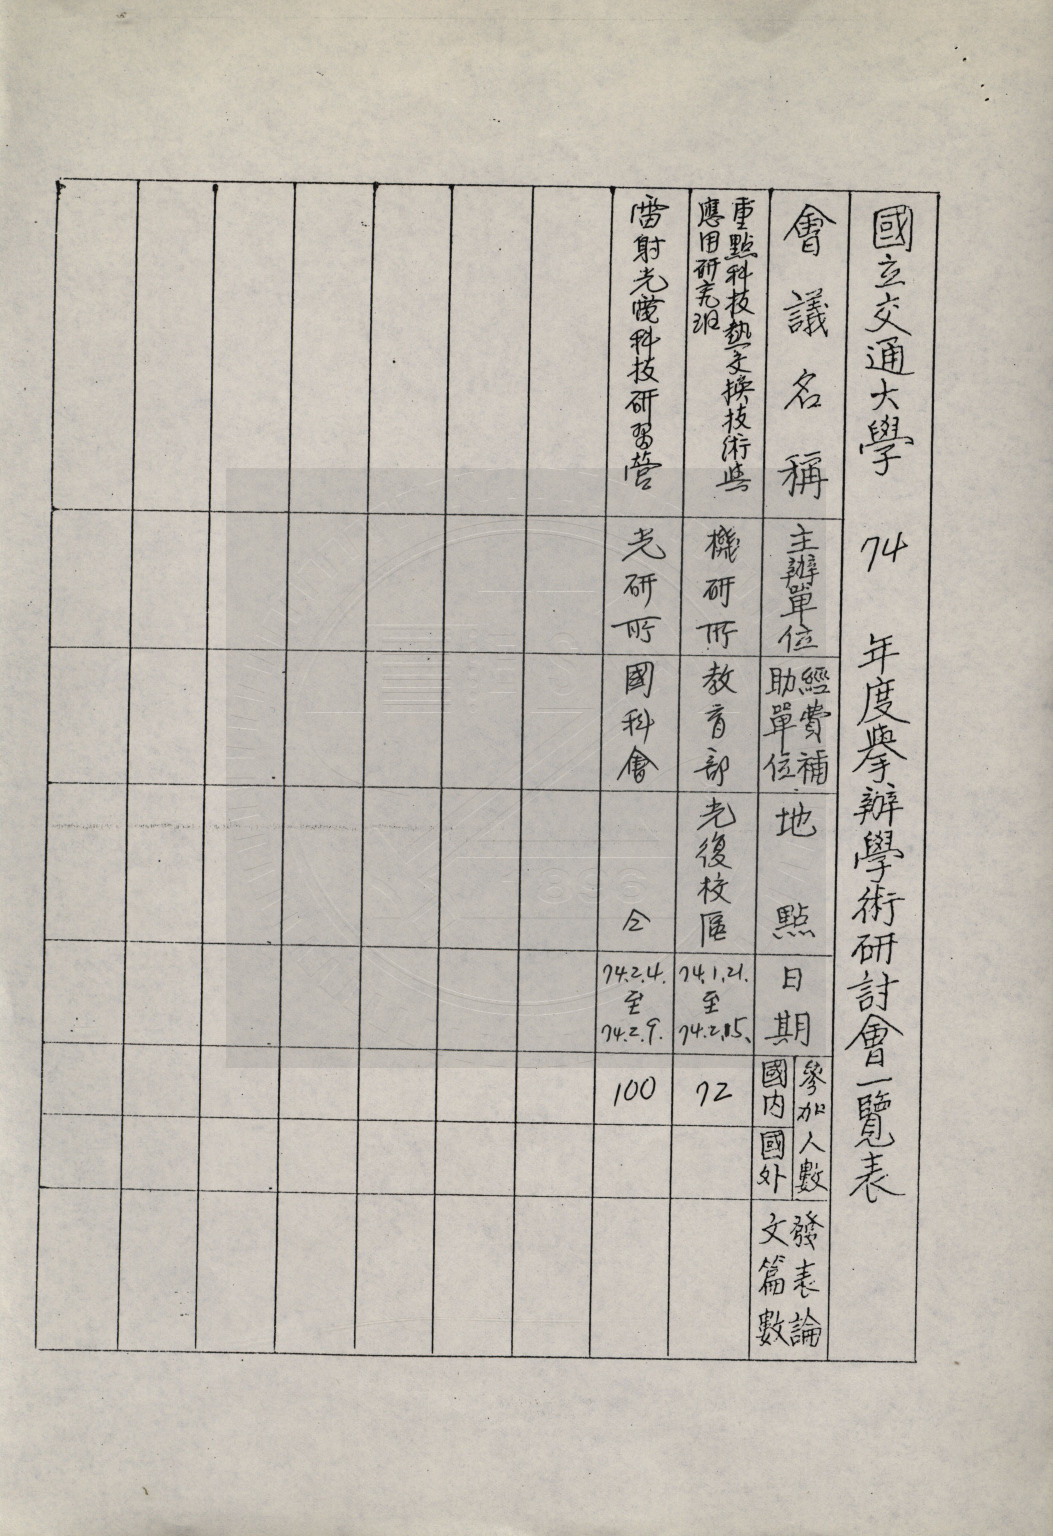 國立交通大學 74 年度舉辦學術研討會一覽表
會議名稱
主辦單位
經費補
助單位
地點
日期
參加人數
國內
國外
發表論
文篇數
重點科技熱交換技術與
應用研究班
機研所
教育部
光復校區
74.1.21.
至
74.2.15.
72
雷射光電科技研習營
光研所
國科會
仝
74.2.4.
至
74.2.9.
100
1896